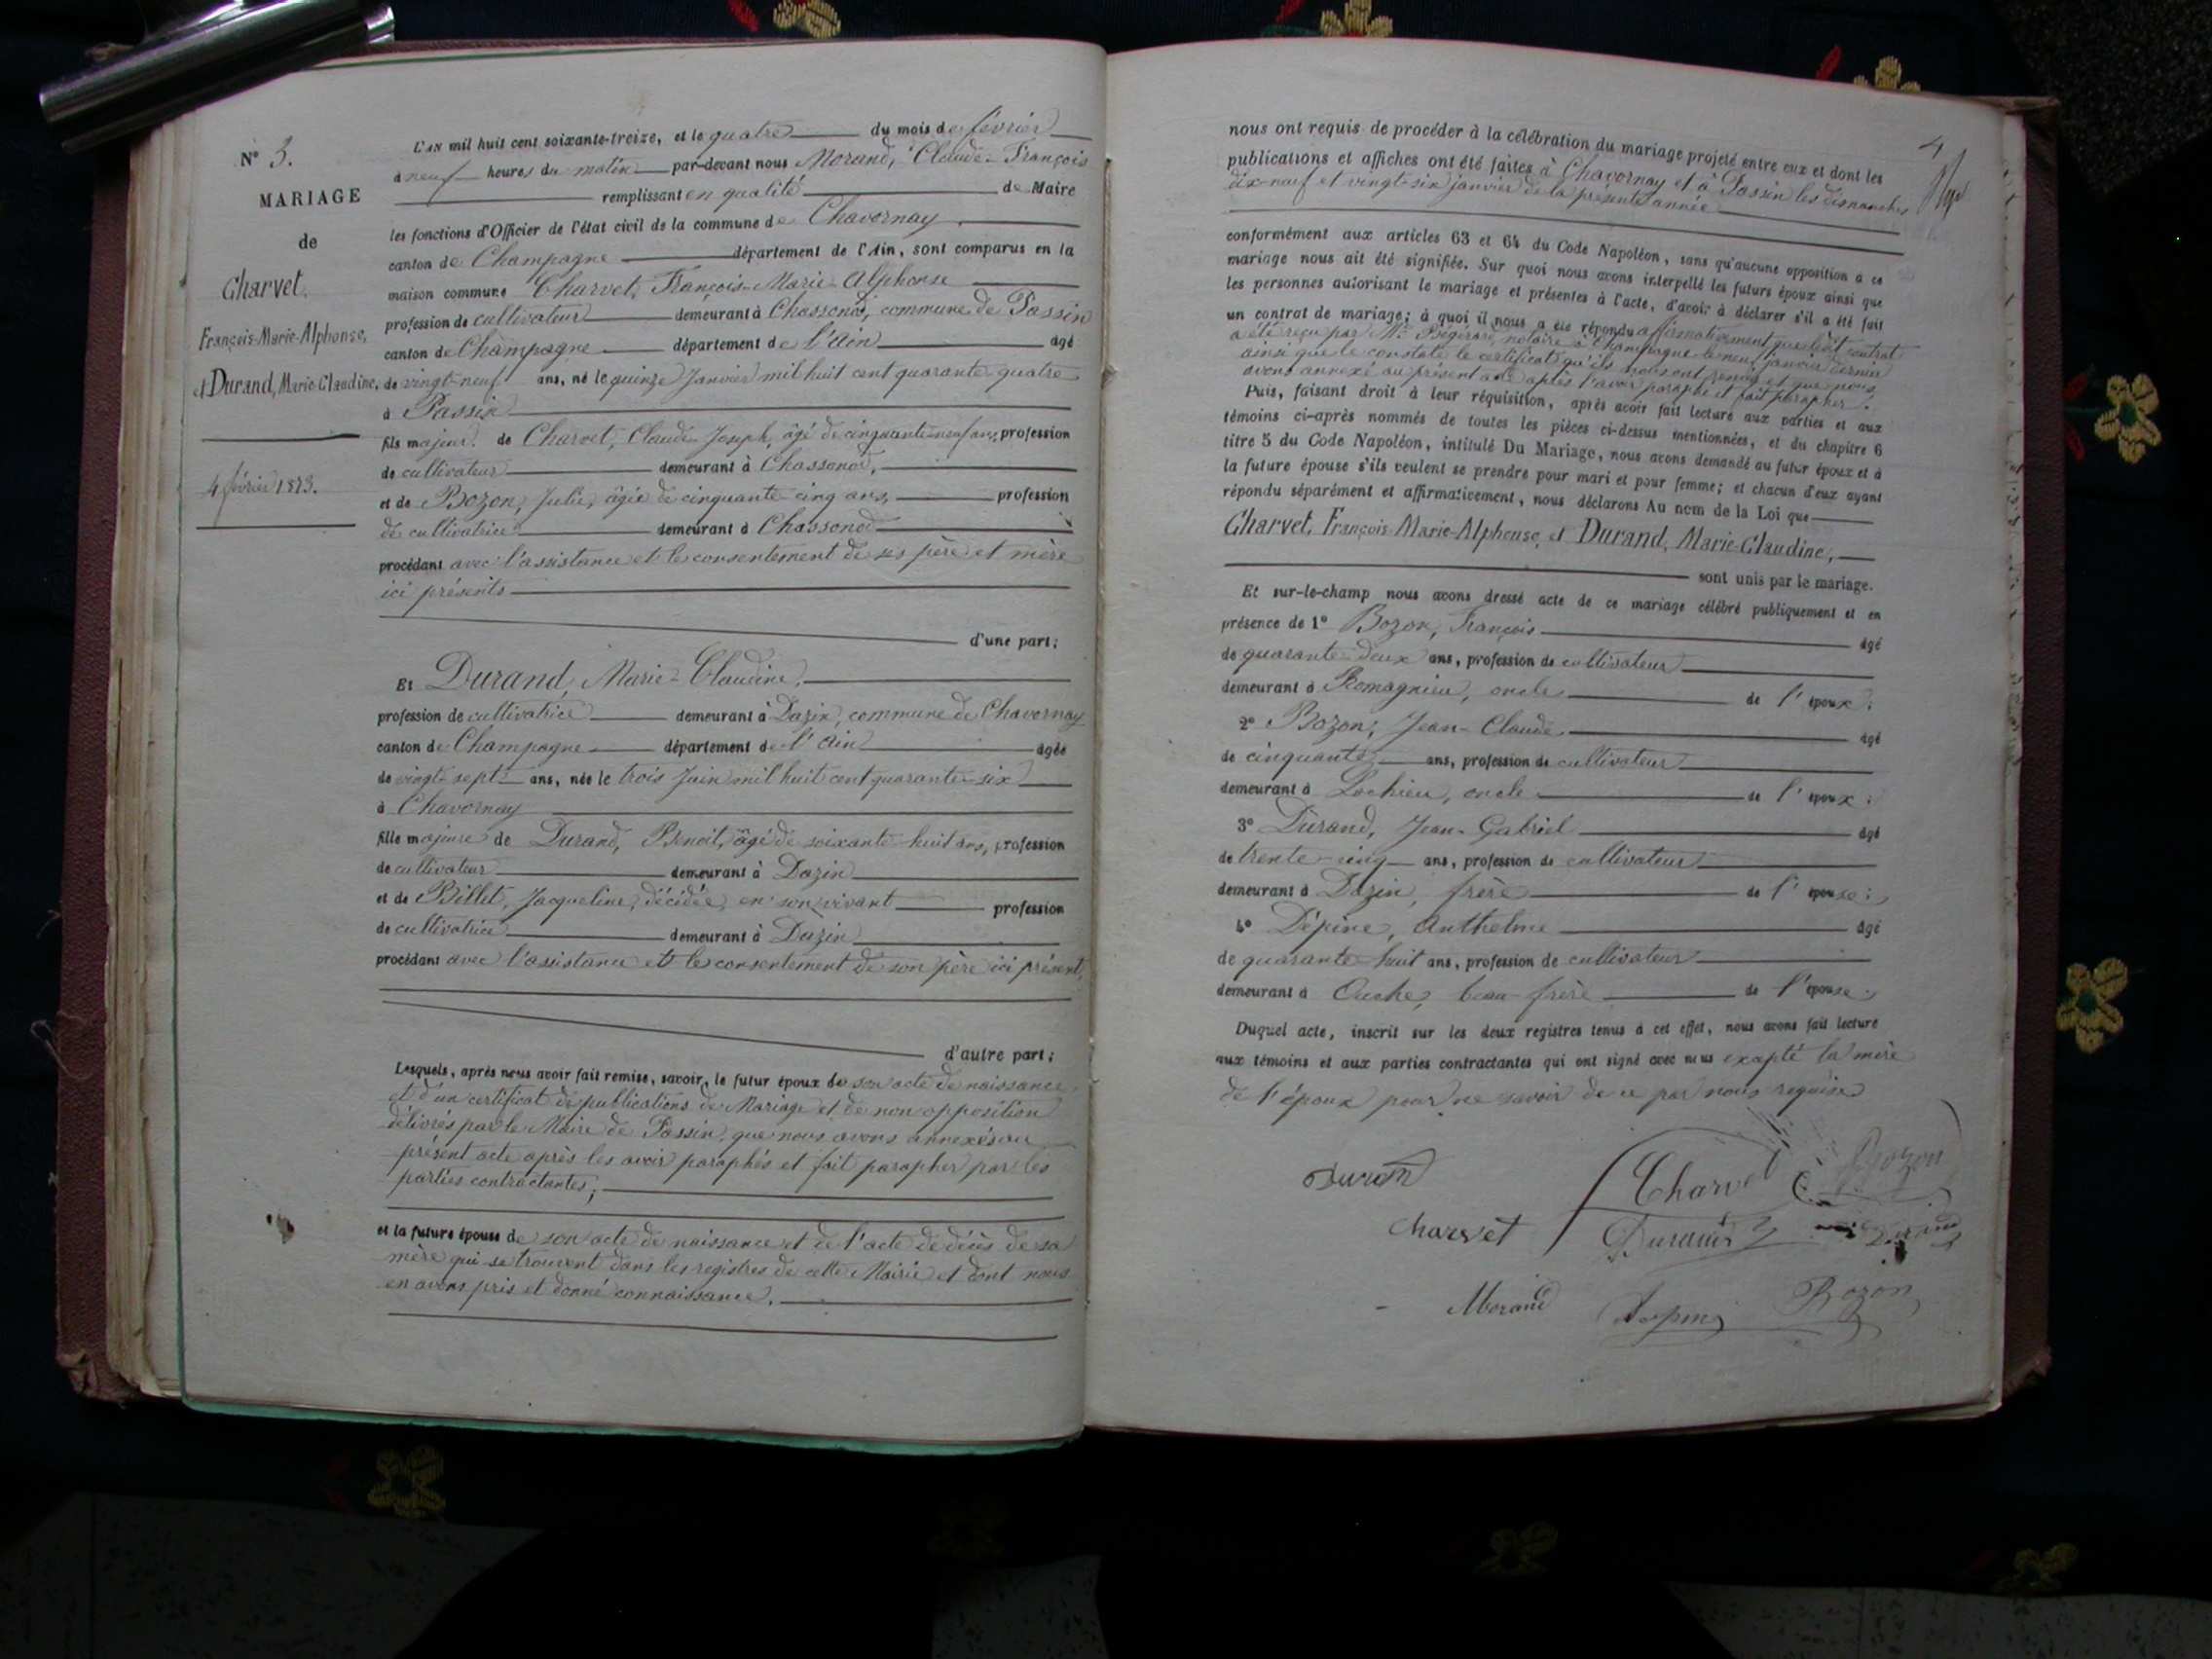 N° 3.
MARIAGE
de
Charvet,
François-Marie-Alphonse,
et Durand, Marie-Claudine,
4 février 1873.
L'AN mil huit cent soixante-treize, et le quatre du mois de février
à neuf heures du matin par-devant nous Morand, Claude-François
remplissant en qualité de Maire
les fonctions d'Officier de l'état civil de la commune de Chavornay
canton de Champagne département de l'Ain, sont comparus en la
maison commune Charvet, François-Marie-Alphonse
profession de cultivateur demeurant à Chassonod, commune de Passin
canton de Champagne département de l'Ain âgé
de vingt-neuf ans, né le quinze Janvier mil huit cent quarante quatre
à Passin
fils majeur de Charvet, Claude-Joseph, âgé de cinquante-neuf ans, profession
de cultivateur demeurant à Chassonod,
et de Bozon, Julie, âgée de cinquante-cinq ans, profession
de cultivatrice demeurant à Chassonod
procédant avec l'assistance et le consentement de ses père et mère
ici présents
d'une part;
Et Durand, Marie-Claudine,
profession de cultivatrice demeurant à Dazin, commune de Chavornay
canton de Champagne département de l'Ain âgée
de vingt-sept ans, née le trois Juin mil huit cent quarante-six
à Chavornay
fille majeure de Durand, Benoit, âgé de soixante-huit ans, profession
de cultivateur demeurant à Dazin
et de Billet, Jacqueline, décédée, en son vivant profession
de cultivatrice demeurant à Dazin
procédant avec l'assistance et le consentement de son père ici présent,
d'autre part;
Lesquels, après nous avoir fait remise, savoir, le futur époux de son acte de naissance
et d'un certificat de publications de Mariage et de non opposition
délivrés par le Maire de Passin, que nous avons annexés au
présent acte après les avoir paraphés et fait parapher par les
parties contractantes,
et la future épouse de son acte de naissance et de l'acte de décès de sa
mère qui se trouvent dans les registres de cette Mairie et dont nous
en avons pris et donné connaissance.
4
nous ont requis de procéder à la célébration du mariage projeté entre eux et dont les
publications et affiches ont été faites à Chavornay et à Passin les dimanches
dix-neuf et vingt-six janvier de la présente année
conformément aux articles 63 et 64 du Code Napoléon, sans qu'aucune opposition à ce
mariage nous ait été signifiée. Sur quoi nous avons interpellé les futurs époux ainsi que
les personnes autorisant le mariage et présentes à l'acte, d'avoir à déclarer s'il a été fait
un contrat de mariage; à quoi il nous a été répondu affirmativement que ledit contrat
a été reçu par Me notaire à Champagne le neuf janvier dernier
ainsi que le constate le certificat qu'ils nous ont remis et que nous
avons annexé au présent acte après l'avoir paraphé et fait parapher.
Puis, faisant droit à leur réquisition, après avoir fait lecture aux parties et aux
témoins ci-après nommés de toutes les pièces ci-dessus mentionnées, et du chapitre 6
titre 5 du Code Napoléon, intitulé Du Mariage, nous avons demandé au futur époux et à
la future épouse s'ils veulent se prendre pour mari et pour femme; et chacun d'eux ayant
répondu séparément et affirmativement, nous déclarons Au nom de la Loi que
Charvet, François-Marie-Alphonse, et Durand, Marie-Claudine,
sont unis par le mariage.
Et sur-le-champ nous avons dressé acte de ce mariage célébré publiquement et en
présence de 1° Bozon, François âgé
de quarante-deux ans, profession de cultivateur
demeurant à Romagnieu, oncle de l'époux;
2° Bozon, Jean-Claude âgé
de cinquante ans, profession de cultivateur
demeurant à Lochieu, oncle de l'époux;
3° Durand, Jean-Gabriel âgé
de trente-cinq ans, profession de cultivateur
demeurant à Dazin, frère de l'épouse;
4° Dépine, Anthelme âgé
de quarante-huit ans, profession de cultivateur
demeurant à Ouche, beau-frère de l'épouse.
Duquel acte, inscrit sur les deux registres tenus à cet effet, nous avons fait lecture
aux témoins et aux parties contractantes qui ont signé avec nous excepté la mère
de l'époux pour ne savoir de ce par nous requise
Durand
Charvet
Bozon
Charvet
Durand
Durand
Morand
Depine
Bozon